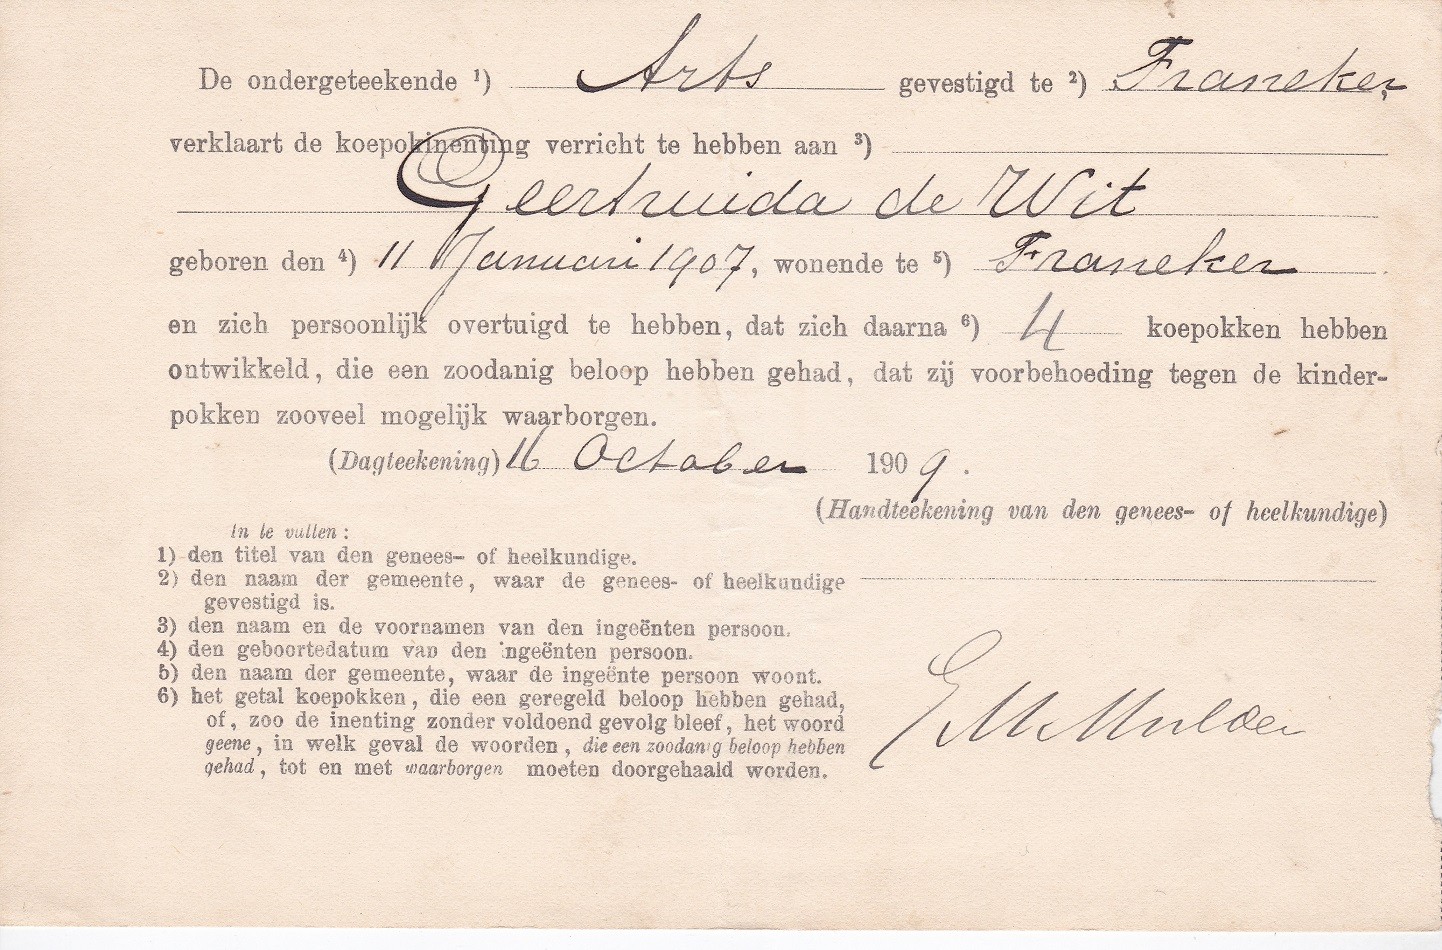 De ondergeteekende ¹) Arts gevestigd te ²) Franeker,
verklaart de koepokinenting verricht te hebben aan ³)
Geertruida de Wit
geboren den ⁴) 11 Januari 1907, wonende te ⁵) Franeker
en zich persoonlijk overtuigd te hebben, dat zich daarna ⁶) 4 koepokken hebben
ontwikkeld, die een zoodanig beloop hebben gehad, dat zij voorbehoeding tegen de kinder-
pokken zooveel mogelijk waarborgen.
(Dagteekening) 16 October 1909.
(Handteekening van den genees- of heelkundige)
In te vullen:
1) den titel van den genees- of heelkundige.
2) den naam der gemeente, waar de genees- of heelkundige
gevestigd is.
3) den naam en de voornamen van den ingeënten persoon.
4) den geboortedatum van den ingeënten persoon.
5) den naam der gemeente, waar de ingeënte persoon woont.
6) het getal koepokken, die een geregeld beloop hebben gehad,
of, zoo de inenting zonder voldoend gevolg bleef, het woord
geene, in welk geval de woorden, die een zoodanig beloop hebben
gehad, tot en met waarborgen moeten doorgehaald worden.
E M Mulder